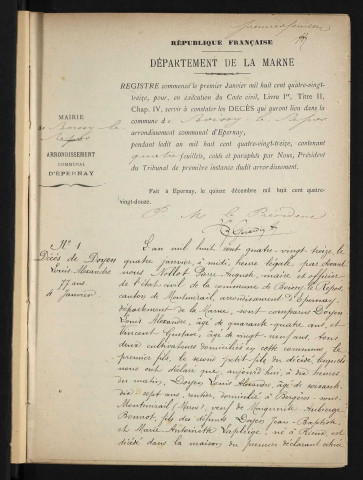 RÉPUBLIQUE FRANÇAISE
DÉPARTEMENT DE LA MARNE
REGISTRE commencé le premier Janvier mil huit cent quatre-vingt-
treize, pour, en exécution du Code civil, Livre Ier, Titre II,
Chap. IV, servir à constater les DÉCÈS qui auront lieu dans la
commune de Boissy-le-Repos
arrondissement communal d'Epernay,
pendant ledit an mil huit cent quatre-vingt-treize, contenant
quatre feuillets, cotés et paraphés par Nous, Président
du Tribunal de première instance dudit arrondissement.
MAIRIE
de Boissy-le-
Repos
ARRONDISSEMENT
COMMUNAL
D'EPERNAY
Fait à Epernay, le quinze décembre mil huit cent quatre-
vingt-douze.
P. M. le Président
No 1
Décès de Doyen
Louis Alexandre
77 ans
4 Janvier
L'an mil huit cent quatre-vingt treize, le
quatre janvier, à midi, heure légale, par devant
nous Nollot Pierre Auguste, maire et officier
de l'état civil de la commune de Boissy le Repos,
canton de Montmirail, arrondissement d'Epernay,
département de la Marne, sont comparus Doyen
Louis Alexandre, âgé de quarante-quatre ans, et
Vincent Gustave, âgé de vingt-neuf ans, tous
deux cultivateurs domiciliés en cette commune, le
premier fils, le second petit-fils du décédé, lesquels
nous ont déclaré que, aujourd'hui, à dix heures
du matin, Doyen Louis Alexandre, âgé de soixante
dix sept ans, rentier, domicilié à Bergères-sous-
Montmirail (Marne), veuf de Marguerite Auberge
Bonnot, fils des défunts Doyen Jean-Baptiste
et Marie Antoinette Laplaige, né à Rieux, est
décédé dans la maison du premier déclarant située